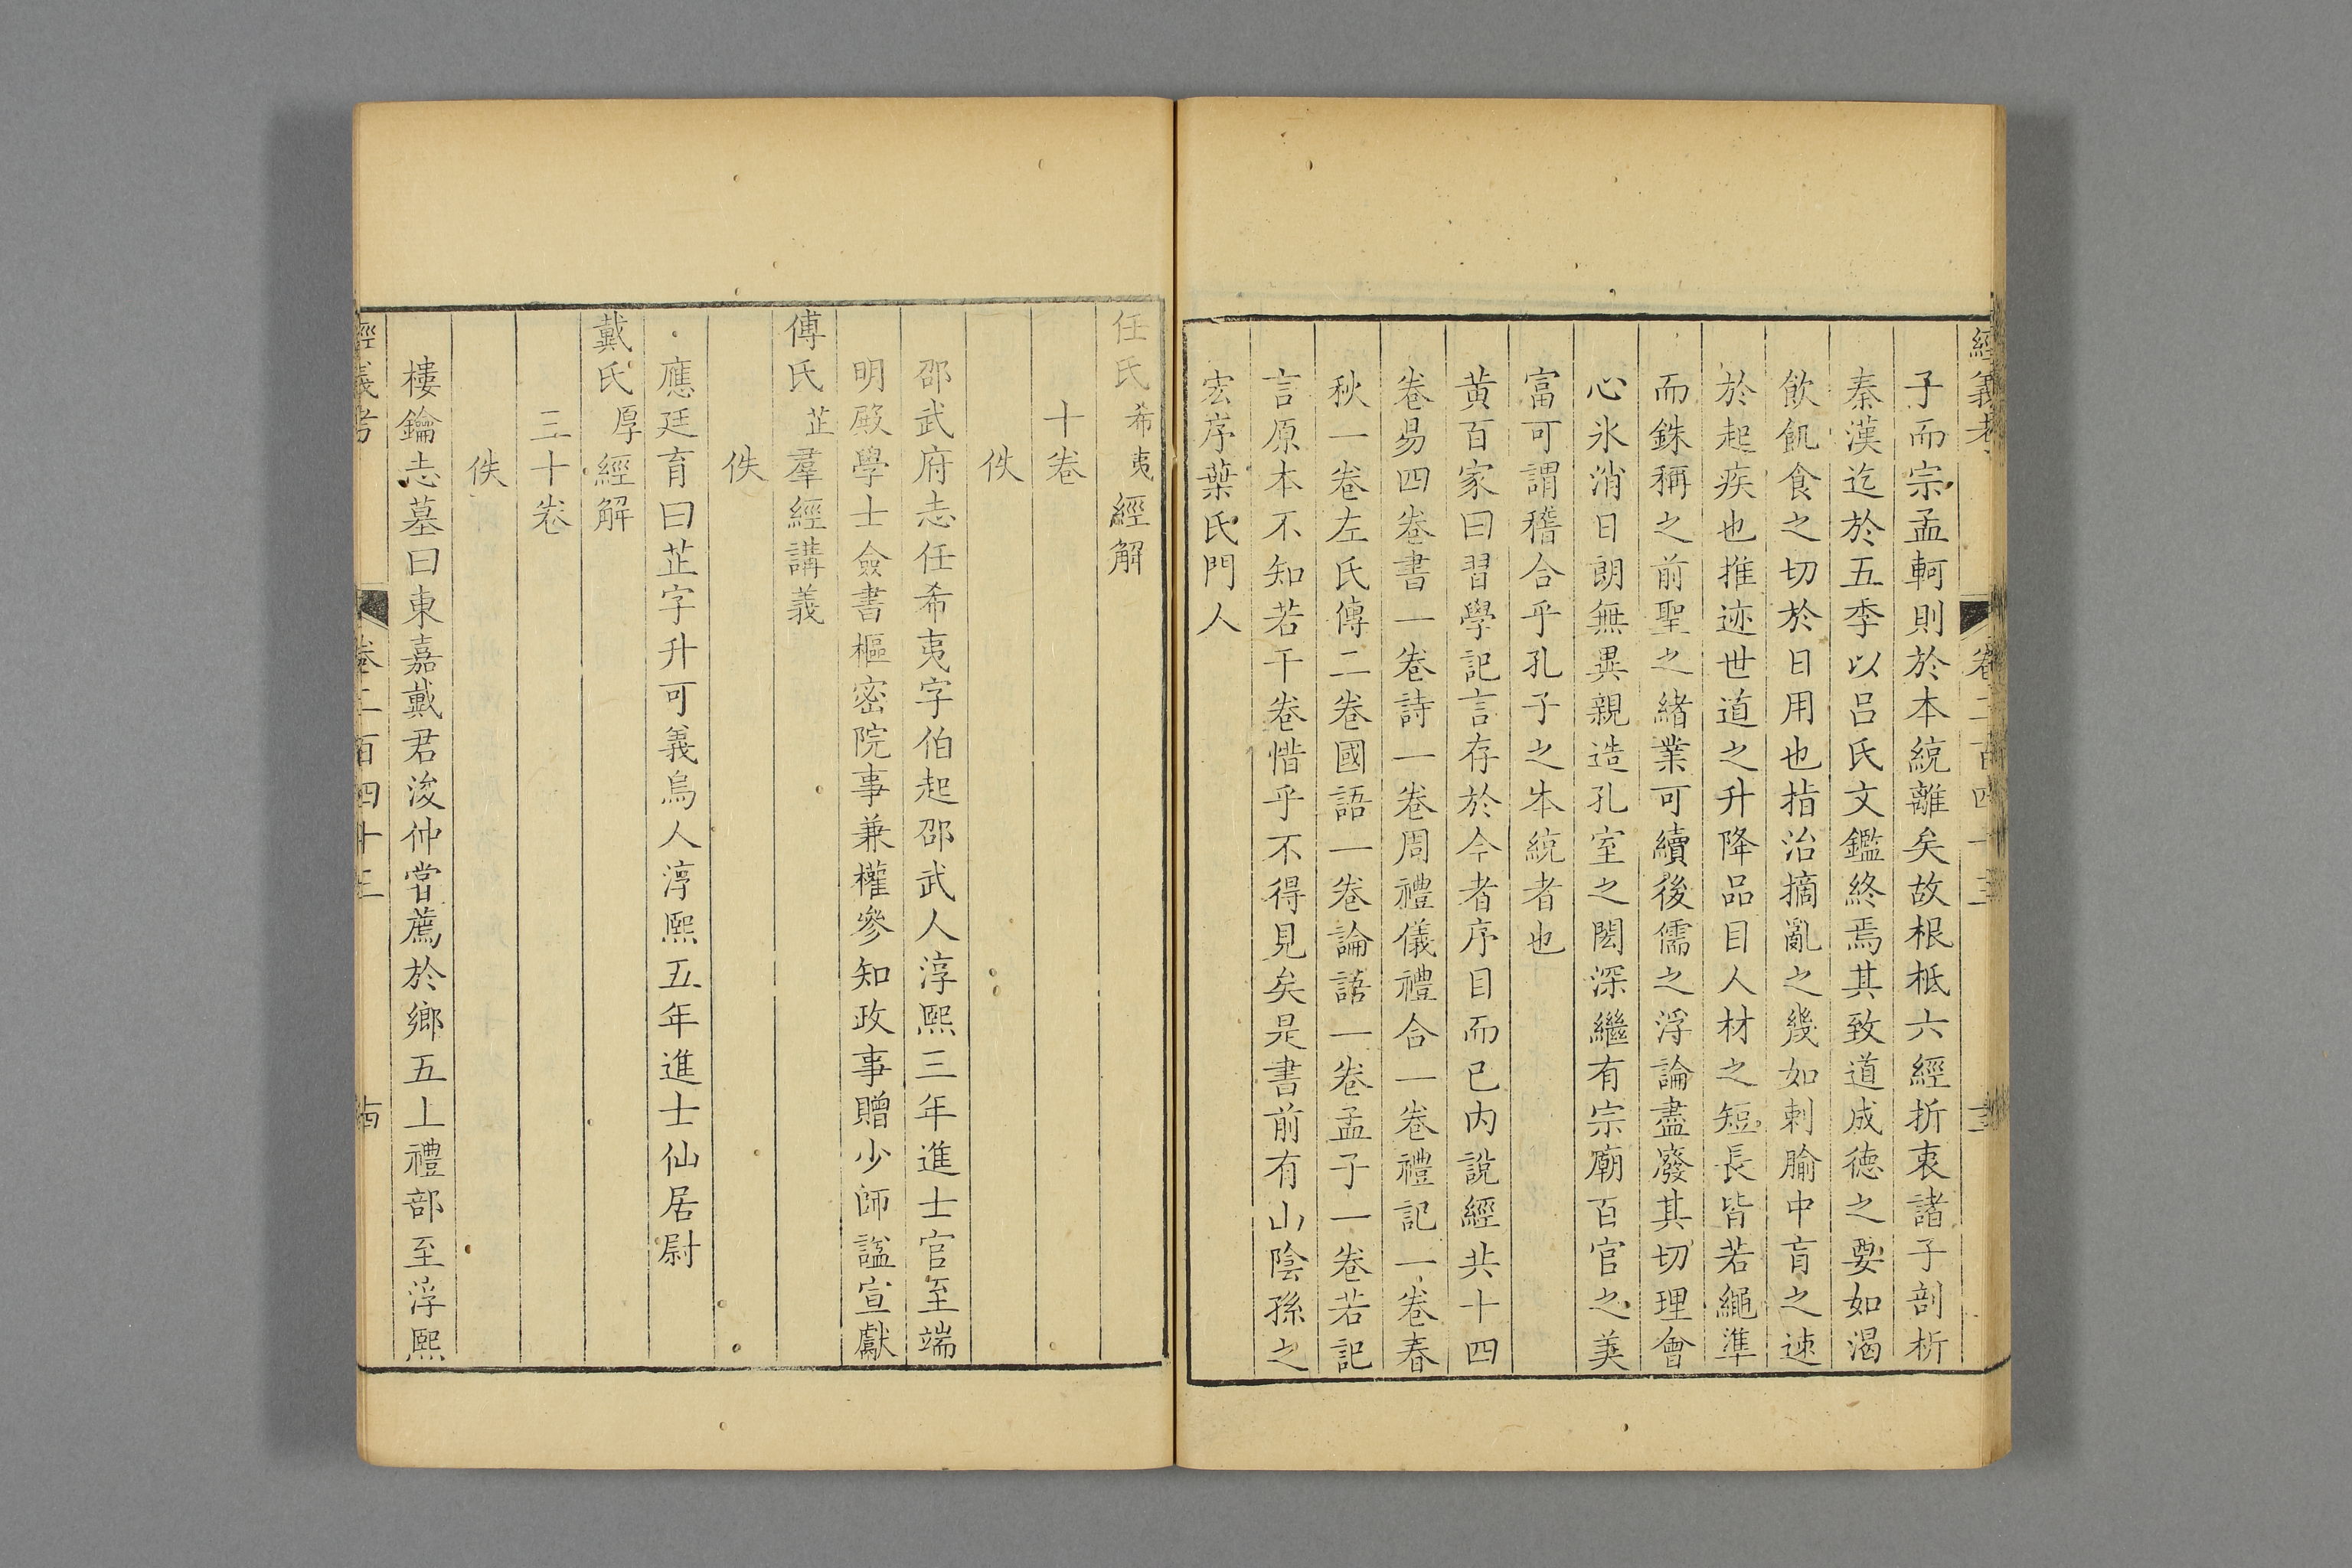 經義考 卷二百四十三
子而宗孟軻則於本統離矣故根柢六經折衷諸子剖析
秦漢迄於五季以呂氏文鑑終焉其致道成德之要如渴
飲飢食之切於日用也指治摘亂之幾如刺腧中肓之速
於起疾也推迹世道之升降品目人材之短長皆若繩準
而銖稱之前聖之緒業可續後儒之浮論盡廢其切理會
心氷消日朗無異親造孔室之閎深繼有宗廟百官之美
富可謂稽合乎孔子之本統者也
黄百家曰習學記言存於今者序目而已内說經共十四
卷易四卷書一卷詩一卷周禮儀禮合一卷禮記一卷春
秋一卷左氏傳二卷國語一卷論語一卷孟子一卷若記
言原本不知若干卷惜乎不得見矣是書前有山陰孫之
宏序葉氏門人
任氏希夷經解
十卷
佚
邵武府志任希夷字伯起邵武人淳熙三年進士官至端
明殿學士僉書樞密院事兼權參知政事贈少師諡宣獻
傅氏芷羣經講義
佚
應廷育曰芷字升可義烏人淳熙五年進士仙居尉
戴氏厚經解
三十卷
佚
樓鑰志墓曰東嘉戴君浚仲嘗薦於鄉五上禮部至淳熙
經義考 卷二百四十三